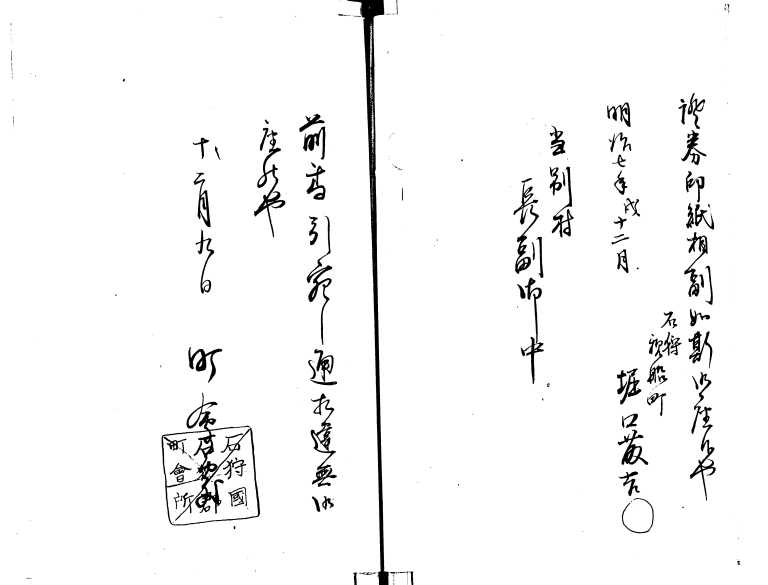 證券印紙相副如斯御座候也
明治七年戌十二月
石狩
親船町
堀口
当別村
長副御中
前書引宛之通相違無御
座候也
十二月九日
町会所
石狩國
石狩郡
町會所